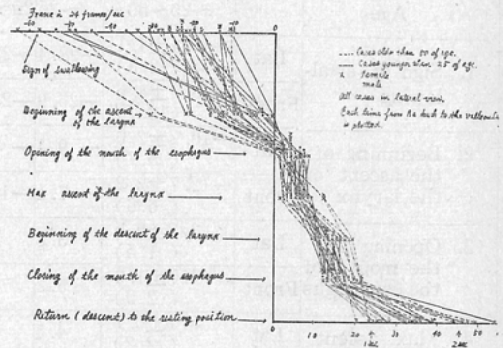 Frame is 24 frames/sec
-60 -50 -40 -30 -20 -10 0
Sign of swallowing
Beginning of the ascent
of the larynx
Opening of the mouth of the esophagus
Max ascent of the larynx
Beginning of the descent of the larynx
Closing of the mouth of the esophagus
Return (descent) to the resting position
---- Cases older than 50 of age.
—— Cases younger than 25 of age.
x : female
. male
All cases in lateral view.
Each time from the
is plotted.
0 10 20 30 40 50
1 sec 2 sec